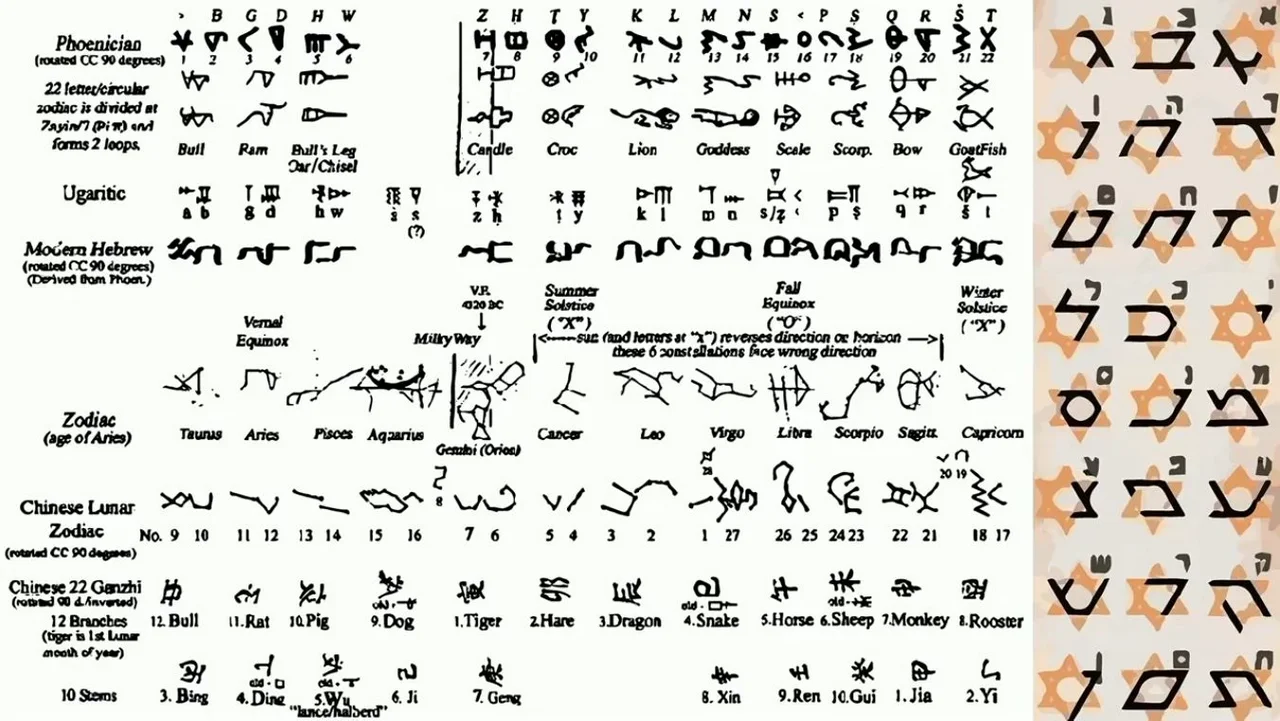 B G D H W Z H T Y K L M N S < P Ṣ Q R Š T
Phoenician
(rotated CC 90 degrees)
1 2 3 4 5 6 7 8 9 10 11 12 13 14 15 16 17 18 19 20 21 22
22 letter/circular
zodiac is divided at
7ayin/7 (Pi π) and
forms 2 loops.
Bull Ram Bull's Leg Candle Croc Lion Goddess Scale Scorp. Bow GoatFish
Oar/Chisel
Ugaritic
a b g d h w s z h t y k l m n s/z < p ṣ q r š t
(?)
Modern Hebrew
(rotated CC 90 degrees)
(Derived from Phoen.)
V.P. Summer Fall Winter
4320 BC Solstice Equinox Solstice
("X") ("O") ("X")
Vernal
Equinox
Milky Way
<----sun (and letters at "x") reverses direction on horizon -->
these 6 constellations face wrong direction
Zodiac
(age of Aries)
Taurus Aries Pisces Aquarius Cancer Leo Virgo Libra Scorpio Sagitt. Capricorn
Gemini (Orion)
28
20 19
8
Chinese Lunar
Zodiac
(rotated CC 90 degrees)
No. 9 10 11 12 13 14 15 16 7 6 5 4 3 2 1 27 26 25 24 23 22 21 18 17
Chinese 22 Ganzhi
(rotated 90 d./inverted)
12 Branches
(tiger is 1st Lunar
month of year)
old - old - old -
12. Bull 11. Rat 10. Pig 9. Dog 1. Tiger 2. Hare 3. Dragon 4. Snake 5. Horse 6. Sheep 7. Monkey 8. Rooster
10 Stems
old - old -
3. Bing 4. Ding 5. Wu 6. Ji 7. Geng 8. Xin 9. Ren 10. Gui 1. Jia 2. Yi
"lance/halberd"
א ב ג
ד ה ו
ז ח ט
י כ ל
מ נ ס
ע פ צ
ק ר ש
ת ם ן